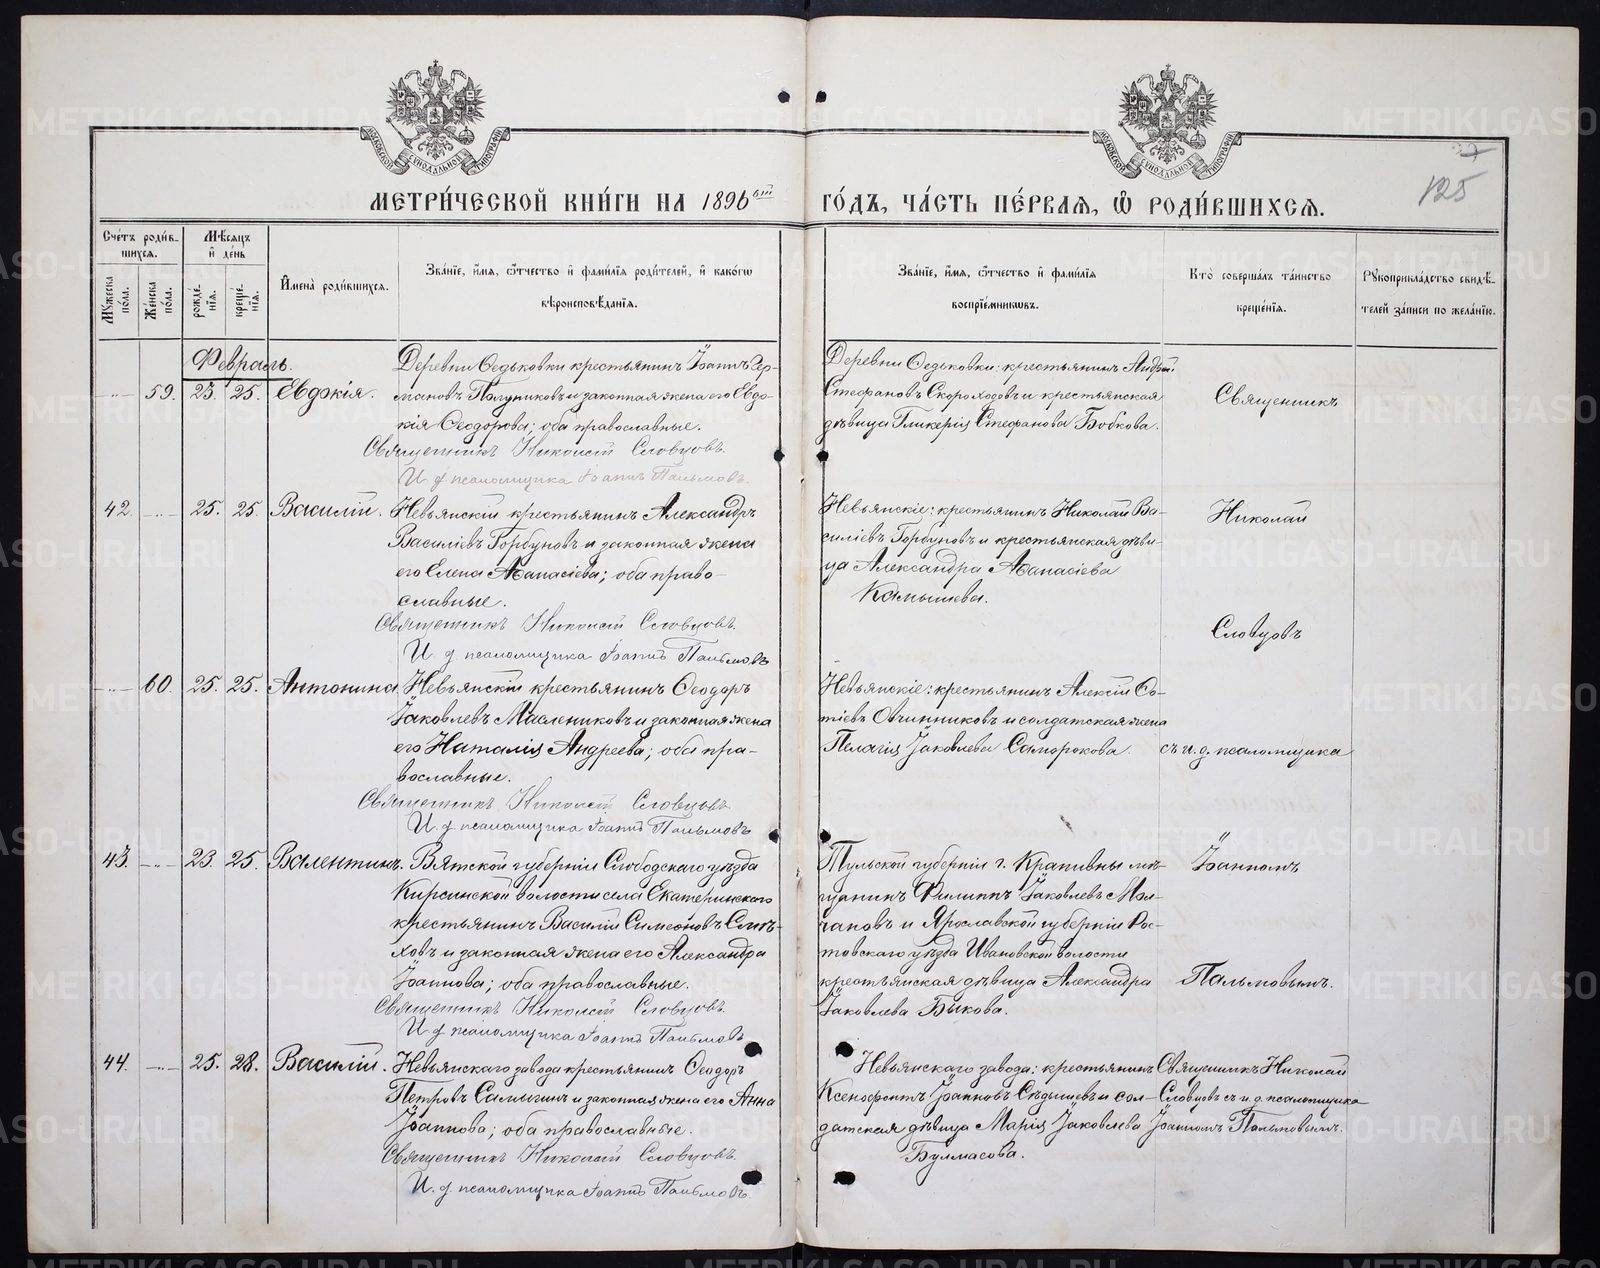 МЕТРИ́ЧЕСКОЙ КНИ́ГИ НА 1896ой ГО́ДЪ, ЧА́СТЬ ПЕ́РВАЯ, Ѽ РОДИ́ВШИХСЯ.
125
Сче́тъ роди́в-
шихся.
Му́жеска по́ла.
Же́нска по́ла.
Мѣ́сяцъ и҆ де́нь
рожде́-
нїя.
креще́-
нїя.
И҆мена̀ роди́вшихся.
Зва́нїе, и҆́мя, ѻ҆́тчество и҆ фами́лїя роди́телей, и҆ како́гѡ
вѣроисповѣ́данїя.
Зва́нїе, и҆́мя, ѻ҆́тчество и҆ фами́лїя
воспрїе́мниковъ.
Кто̀ соверша́лъ та́инство
креще́нїя.
Рꙋкоприкла́дство свидѣ́-
телей за́писи по жела́нїю.
Февраль.
59. 23. 25. Евдокія.
Деревни Федьковки крестьянинъ Іоаннъ Гер-
мановъ Полуниковъ и законная жена его Евдо-
кія Ѳеодорова; оба православные.
Священникъ Николай Словцовъ.
И. д. псаломщика Іоаннъ Пальмовъ.
Деревни Федьковки: крестьянинъ Андрей
Стефановъ Скороходовъ и крестьянская
дѣвица Гликерія Стефанова Бобкова.
Священникъ
42. 25. 25. Василій.
Невьянскій крестьянинъ Александръ
Василіевъ Горбуновъ и законная жена
его Елена Аѳанасіева; оба право-
славные.
Священникъ Николай Словцовъ.
И. д. псаломщика Іоаннъ Пальмовъ
Невьянскіе: крестьянинъ Николай Ва-
силіевъ Горбуновъ и крестьянская дѣви-
ца Александра Аѳанасіева
Камышева.
Николай
Словцовъ
60. 25. 25. Антонина
Невьянскій крестьянинъ Ѳеодоръ
Іаковлевъ Маслениковъ и законная жена
его Наталія Андреева; оба пра-
вославные.
Священникъ Николай Словцовъ
И. д. псаломщика Іоаннъ Пальмовъ
Невьянскіе: крестьянинъ Алексій Фо-
тіевъ Овчинниковъ и солдатская жена
Пелагія Іаковлева Саморокова.
съ и. д. псаломщика
43. 23. 25. Валентинъ.
Вятской губерніи Слободскаго уѣзда
Кирсинской волости села Екатерининскаго
крестьянинъ Василій Симеоновъ Смѣ-
ховъ и законная жена его Александра
Іоаннова; оба православные.
Священникъ Николай Словцовъ.
И. д. псаломщика Іоаннъ Пальмовъ
Тульской губерніи г. Крапивны мѣ-
щанинъ Филиппъ Іаковлевъ Мол-
чановъ и Ярославской губерніи Рос-
товскаго уѣзда Ивановской волости
крестьянская дѣвица Александра
Іаковлева Быкова.
Іоанномъ
Пальмовымъ.
44. 25. 28. Василій.
Невьянскаго завода крестьянинъ Ѳеодоръ
Петровъ Самыгинъ и законная жена его Анна
Іоаннова; оба православные.
Священникъ Николай Словцовъ.
И. д. псаломщика Іоаннъ Пальмовъ.
Невьянскаго завода: крестьянинъ
Ксенофонтъ Іоанновъ Сѣдышевъ и сол-
датская дѣвица Марія Іаковлева
Булмасова.
Священникъ Николай
Словцовъ съ и. д. псаломщика
Іоанномъ Пальмовымъ.